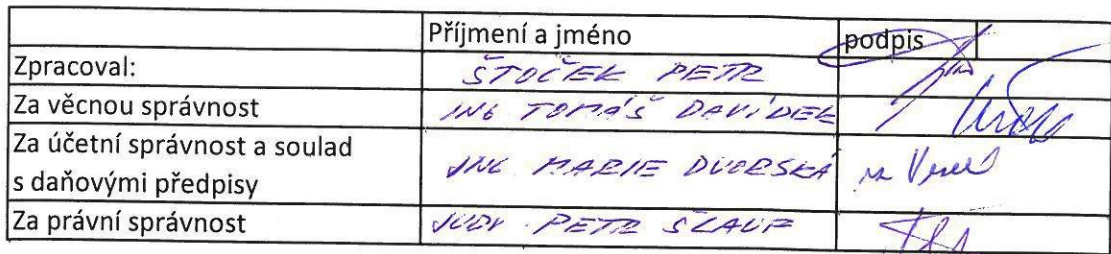 Příjmení a jméno podpis
Zpracoval: ŠTOČEK PETR
Za věcnou správnost ING TOMÁŠ DAVÍDEK
Za účetní správnost a soulad
s daňovými předpisy ING. MARIE DVORSKÁ
Za právní správnost JUDr. PETR ŠLAUF